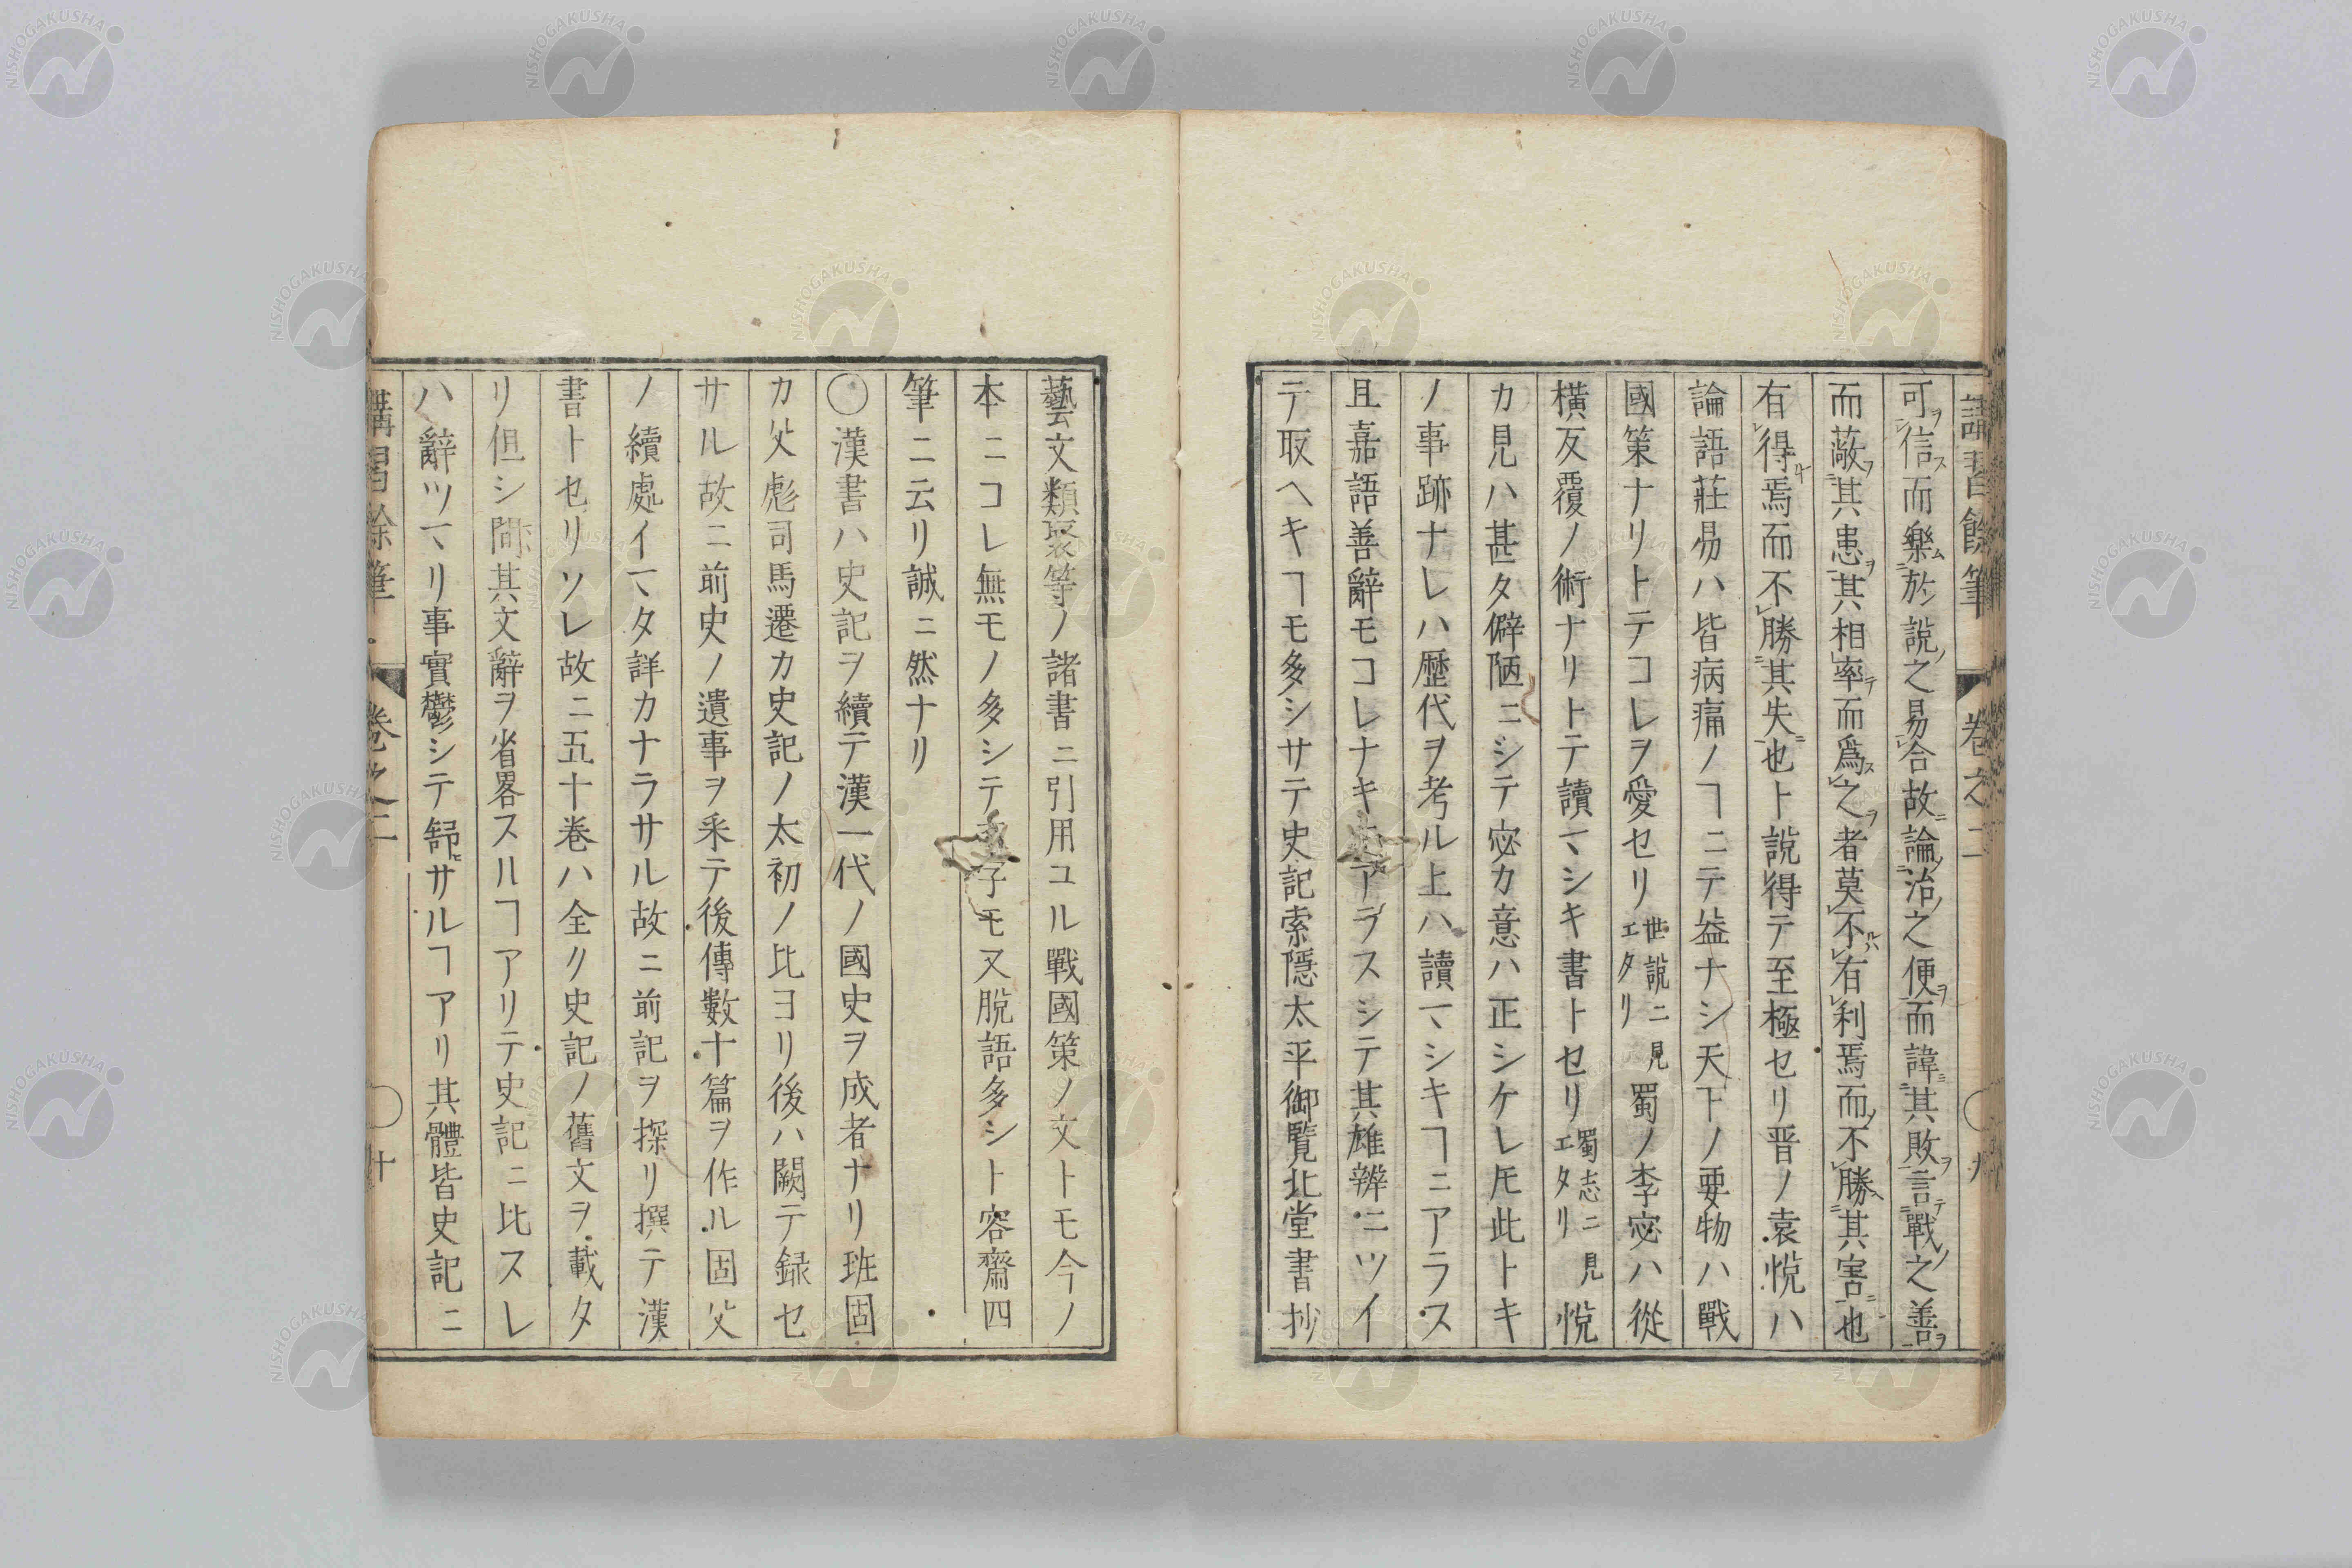 講習餘筆 卷之二 ○ 九
可信而樂於說之易合故論治之便而諱其敗言戰之善
而蔽其患其相率而爲之者莫不有利焉而不勝其害也
有得焉而不勝其失也ト說得テ至極セリ晋ノ袁悅ハ
論語莊易ハ皆病痛ノヿニテ益ナシ天下ノ要物ハ戰
國策ナリトテコレヲ愛セリ世說ニ見エタリ蜀ノ李宓ハ從
橫反覆ノ術ナリトテ讀マヽシキ書トセリ蜀志ニ見エタリ悅
カ見ハ甚タ僻陋ニシテ宓カ意ハ正シケレ𪜈此トキ
ノ事跡ナレハ歷代ヲ考ル上ハ讀マヽシキヿニアラス
且嘉語善辭モコレナキニアラスシテ其雄辨ニツイ
テ取ヘキヿモ多シサテ史記索隱太平御覽北堂書抄
藝文類聚等ノ諸書ニ引用ユル戰國策ノ文トモ今ノ
本ニコレ無モノ多シテ子モ又脫語多シト容齋四
筆ニ云リ誠ニ然ナリ
○漢書ハ史記ヲ續テ漢一代ノ國史ヲ成者ナリ班固
カ父彪司馬遷カ史記ノ太初ノ比ヨリ後ハ闕テ録セ
サル故ニ前史ノ遺事ヲ采テ後傳數十篇ヲ作ル固父
ノ續處イマヽタ詳カナラサル故ニ前記ヲ探リ撰テ漢
書トセリソレ故ニ五十卷ハ全ク史記ノ舊文ヲ載タ
リ但シ間其文辭ヲ省畧スルヿアリテ史記ニ比スレ
ハ辭ツマヽリ事實鬱シテ舒サルヿアリ其體皆史記ニ
講習餘筆 卷之二 ○ 十